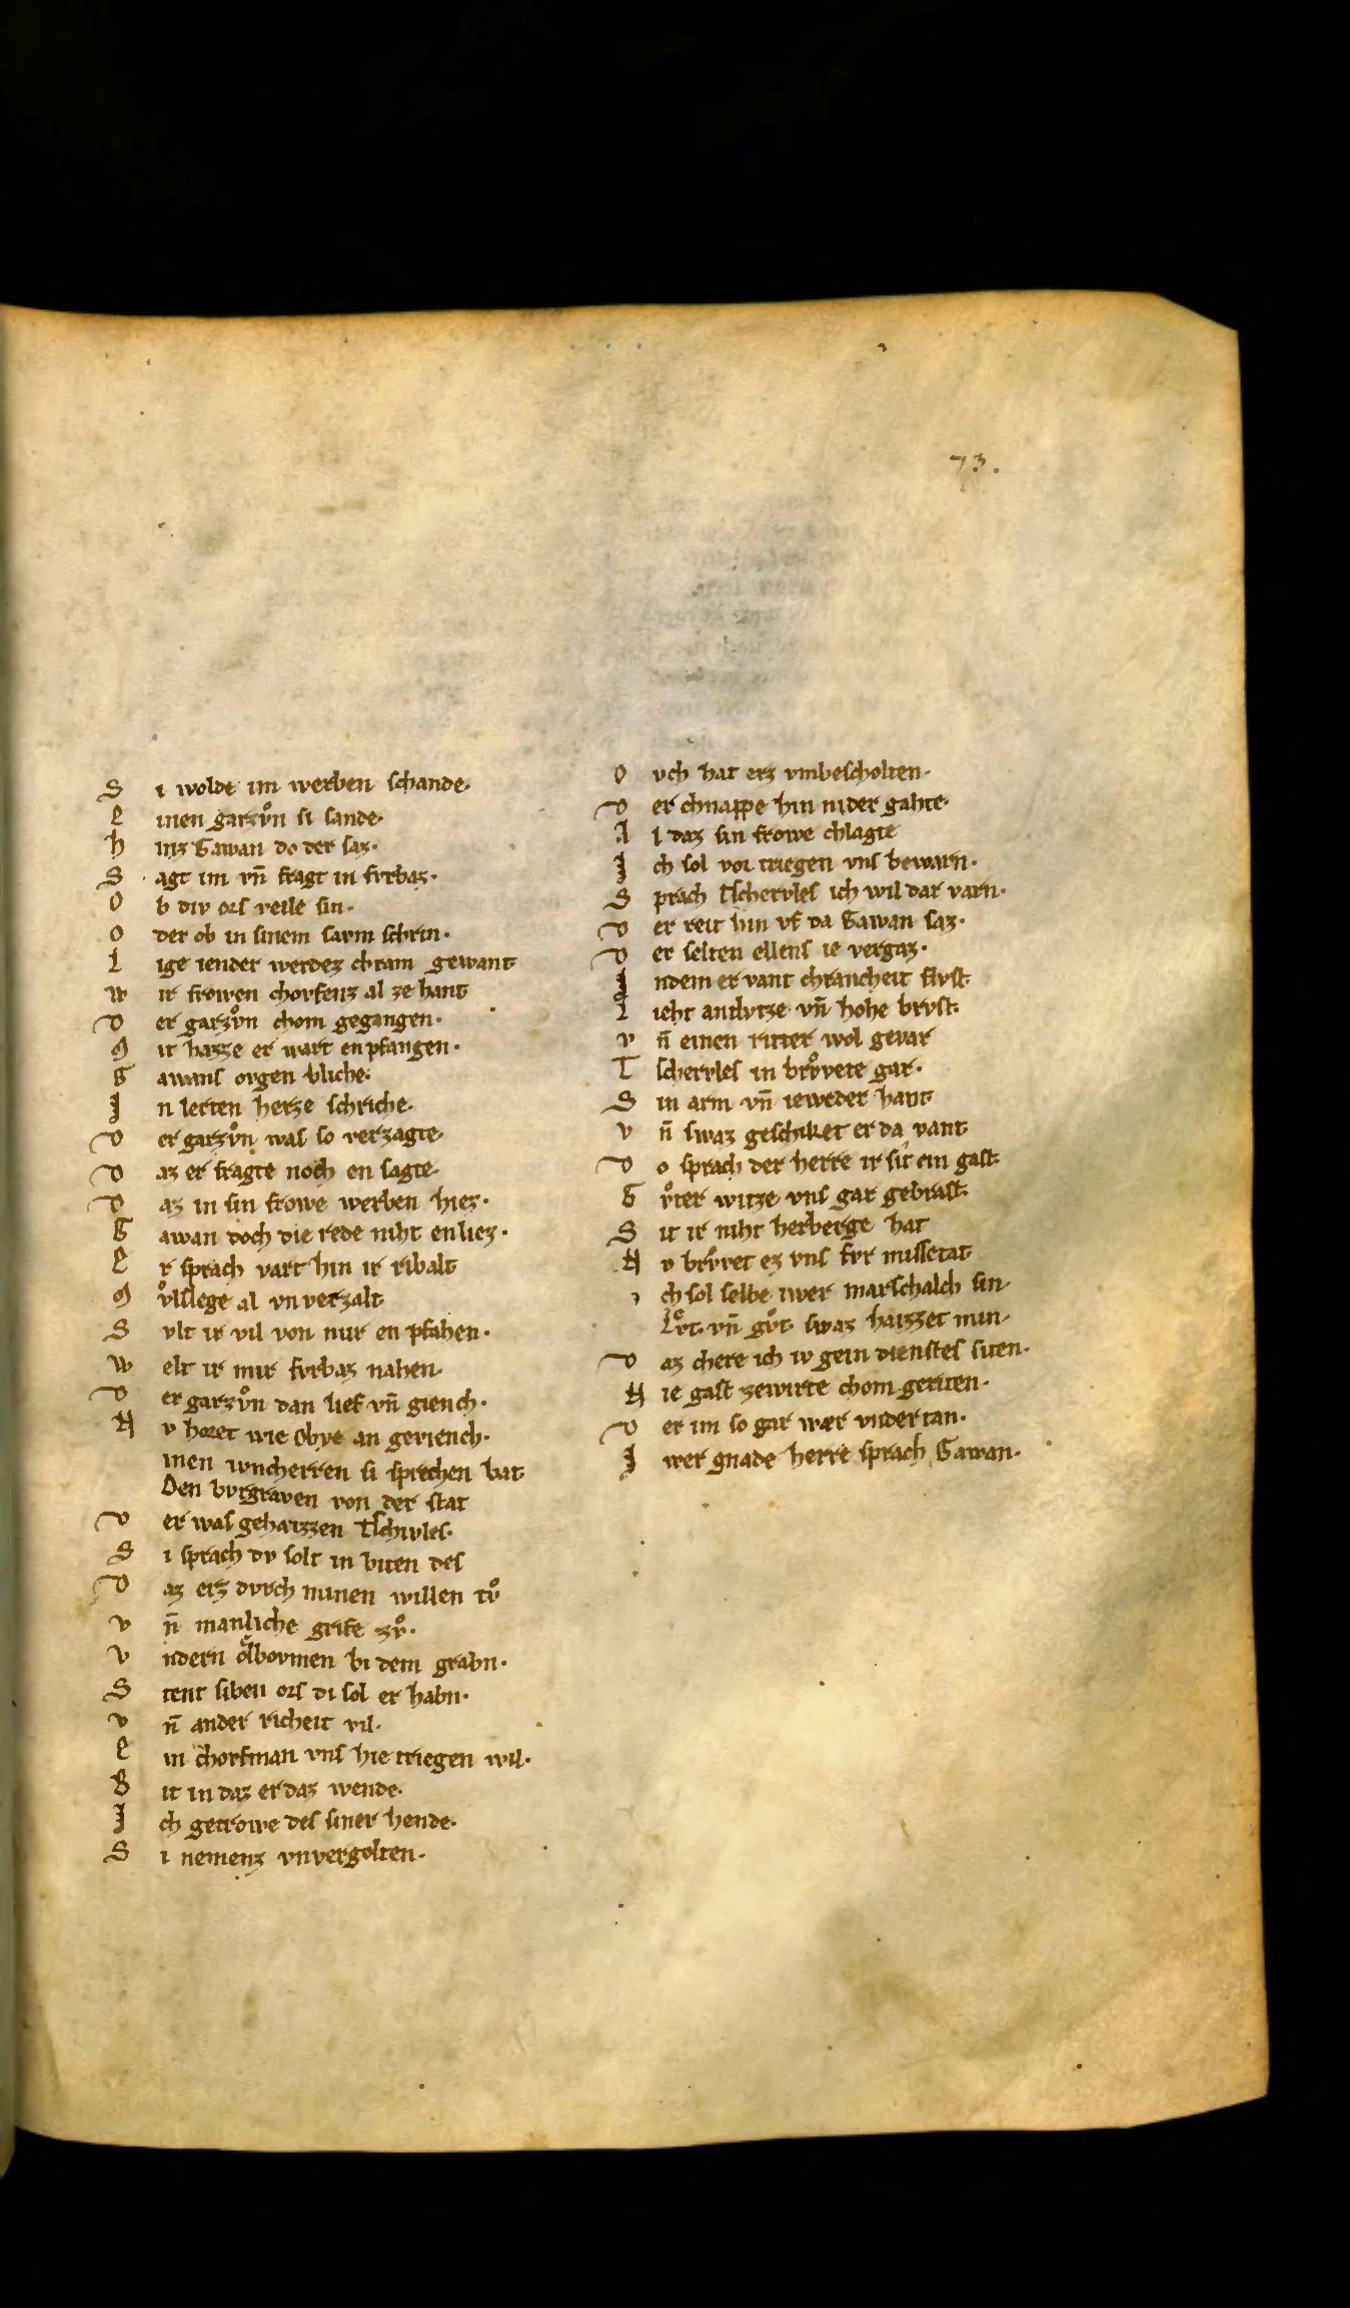 73.
S i wolde im werben schande·
E inen garzvͦn si sande·
h inz Gawan do der saz·
S agt im vn̄ fragt in fvrbaz·
O b div ors veile sin·
O der ob in sinem sarm schrin·
L ige iender werdez chram gewant
W ir frowen chovfenz al ze hant
D er garzvͦn chom gegangen·
M it hazze er wart enpfangen·
G awans ovgen bliche·
I n lerten herze schriche·
D er garzvͦn was so verzagte·
D az er fragte noch en sagte·
D az in sin frowe werben hiez·
G awan doch die rede niht enliez·
E r sprach vart hin ir ribalt
M vͦlslege al vnverzalt
S vlt ir vil von mir enpfahen·
W elt ir mir fvrbaz nahen·
D er garzvͦn dan lief vn̄ giench·
N v horet wie Obye an geviench·
inen ivncherren si sprechen bat
Den bvrgraven von der stat
D er was gehaizzen Tschirvles·
S i sprach dv solt in biten des
D az erz dvrch minen willen tvͦ
v n̄ manliche grife zvͦ·
V ndern oͤlbovmen bi dem grabn·
S tent siben ors di sol er habn·
v n̄ ander richeit vil·
E in chovfman vns hie triegen wil·
B it in daz er daz wende·
I ch getrowe des siner hende·
S i nemenz vnvergolten·
O vch hat erz vmbescholten·
D er chnappe hin nider gahte·
A l daz sin frowe chlagte
I ch sol vor triegen vns bewarn·
S prach Tschervles ich wil dar varn·
D er reit hin vf da Gawan saz·
D er selten ellens ie vergaz·
I ndem er vant chrancheit flvst·
L ieht antlvtze vn̄ hohe brvst·
v n̄ einen ritter wol gevar
T schervles in brvͦvete gar·
S in arm vn̄ ieweder hant
v n̄ swaz geschiket er da vant
D o sprach der herre ir sit ein gast·
G vͦter witze vns gar gebrast·
S it ir niht herberge hat
N v brvͦvet ez vns fvr missetat
I ch sol selbe iwer marschalch sin·
Lvͤt· vn̄ gvͦt· swaz haizzet min·
D az chere ich iv gein dienstes siten·
N ie gast zewirte chom geriten·
D er im so gar wær vndertan·
I wer gnade herre sprach Gawan·